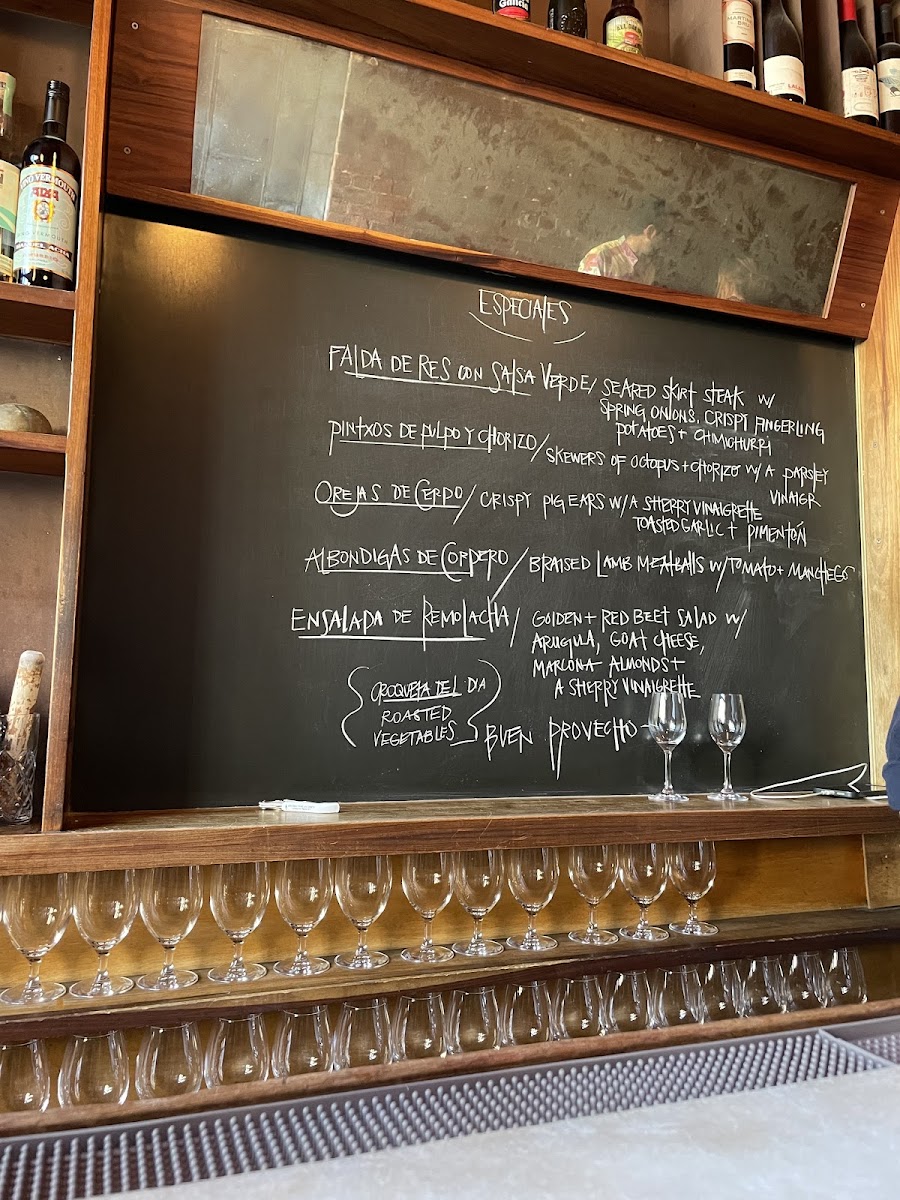 Galicia
MARTIN
VERMOUTH
ESPECIALES
FALDA DE RES CON SALSA VERDE/ SEARED SKIRT STEAK W/
SPRING ONIONS, CRISPY FINGERLING
POTATOES + CHIMICHURRI
PINTXOS DE PULPO Y CHORIZO/ SKEWERS OF OCTOPUS + CHORIZO W/ A PARSLEY
VINAIGR
OREJAS DE CERDO/ CRISPY PIG EARS W/ A SHERRY VINAIGRETTE
TOASTED GARLIC + PIMENTÓN
ALBONDIGAS DE CORDERO/ BRAISED LAMB MEATBALLS W/ TOMATO + MANCHEGO
ENSALADA DE REMOLACHA/ GOLDEN + RED BEET SALAD W/
ARUGULA, GOAT CHEESE,
MARCONA ALMONDS +
A SHERRY VINAIGRETTE
CROQUETA DEL DIA
ROASTED
VEGETABLES
BUEN PROVECHO-